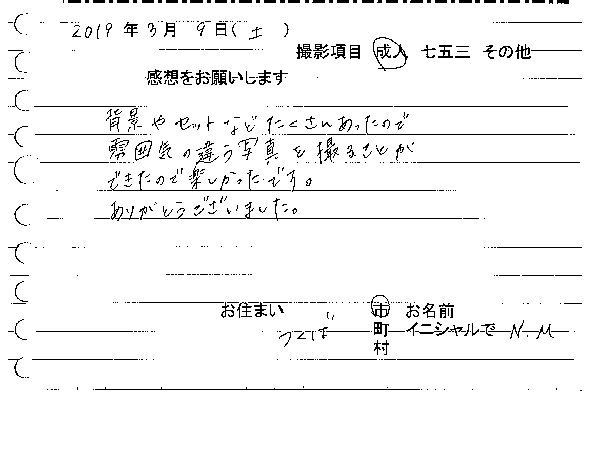 2019年3月9日(土)
撮影項目 成人 七五三 その他
感想をお願いします
背景やセットなどたくさんあったので
雰囲気の違う写真を撮ることが
できたので楽しかったです。
ありがとうございました。
お住まい つくば 市 町 村
お名前 イニシャルで N.M